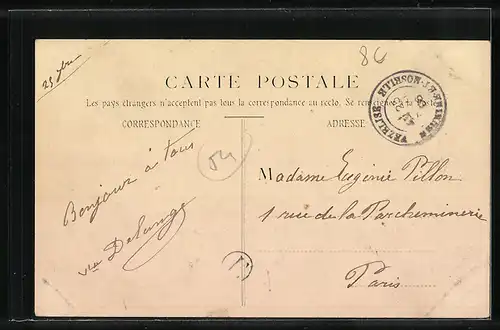 86
25
CARTE POSTALE
Les pays étrangers n'acceptent pas tous la correspondance au recto. Se renseigner à la poste
CORRESPONDANCE
ADRESSE
VEZELISE
MEURTHE-ET-MOSELLE
54
Bonjour à tous
Delange
Madame Eugénie Pillon
1 rue de la Parcheminerie
Paris